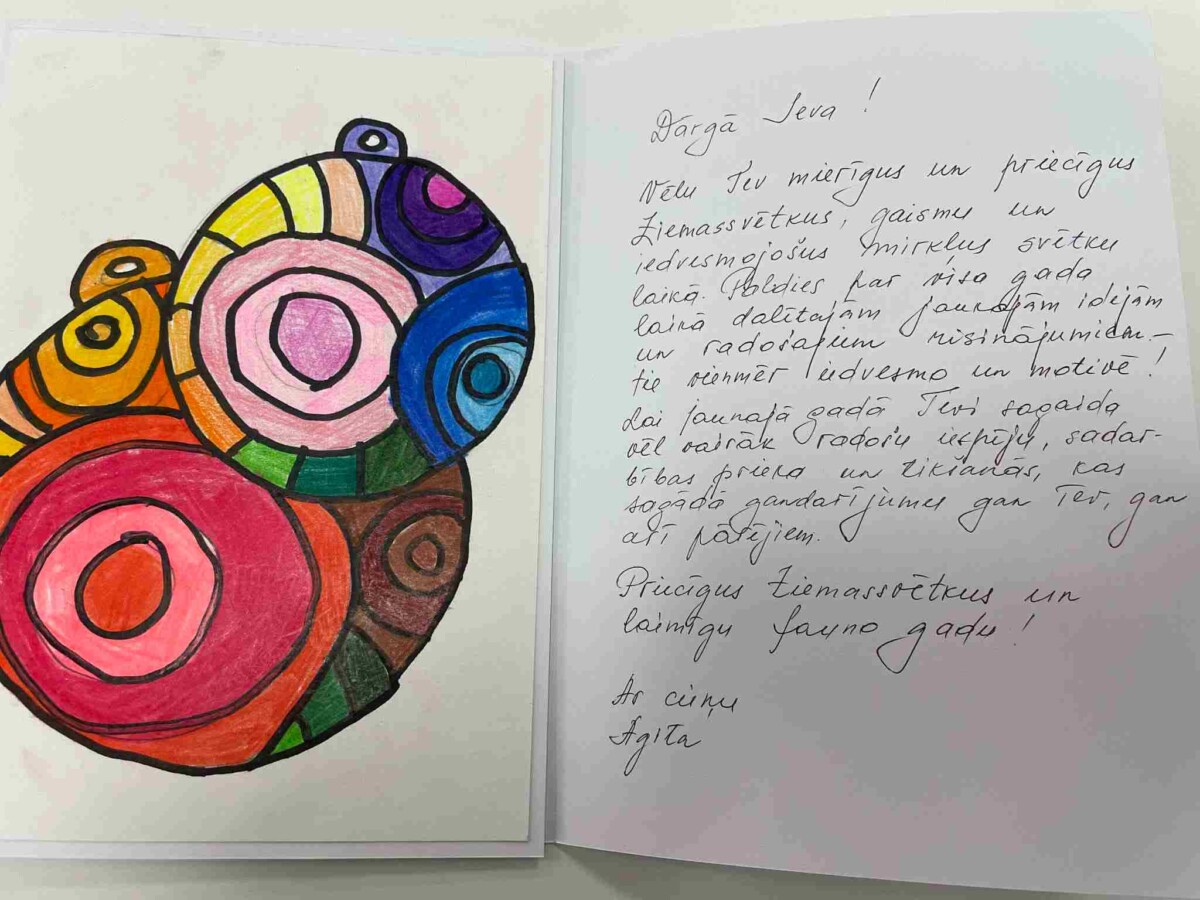 Dārgā Ieva!
Vēlu Tev mierīgus un priecīgus
Ziemassvētkus, gaismu un
iedvesmojošus mirkļus svētku
laikā. Paldies par visa gada
laikā dalītajām jaunajām idejām
un radošajiem risinājumiem –
tie vienmēr iedvesmo un motivē!
Lai jaunajā gadā Tevi sagaida
vēl vairāk radošu iespēju, sadar-
bības prieka un tikšanās, kas
sagādā gandarījumu gan Tev, gan
arī pārējiem.
Priecīgus Ziemassvētkus un
laimīgu Jauno gadu!
Ar cieņu
Agita